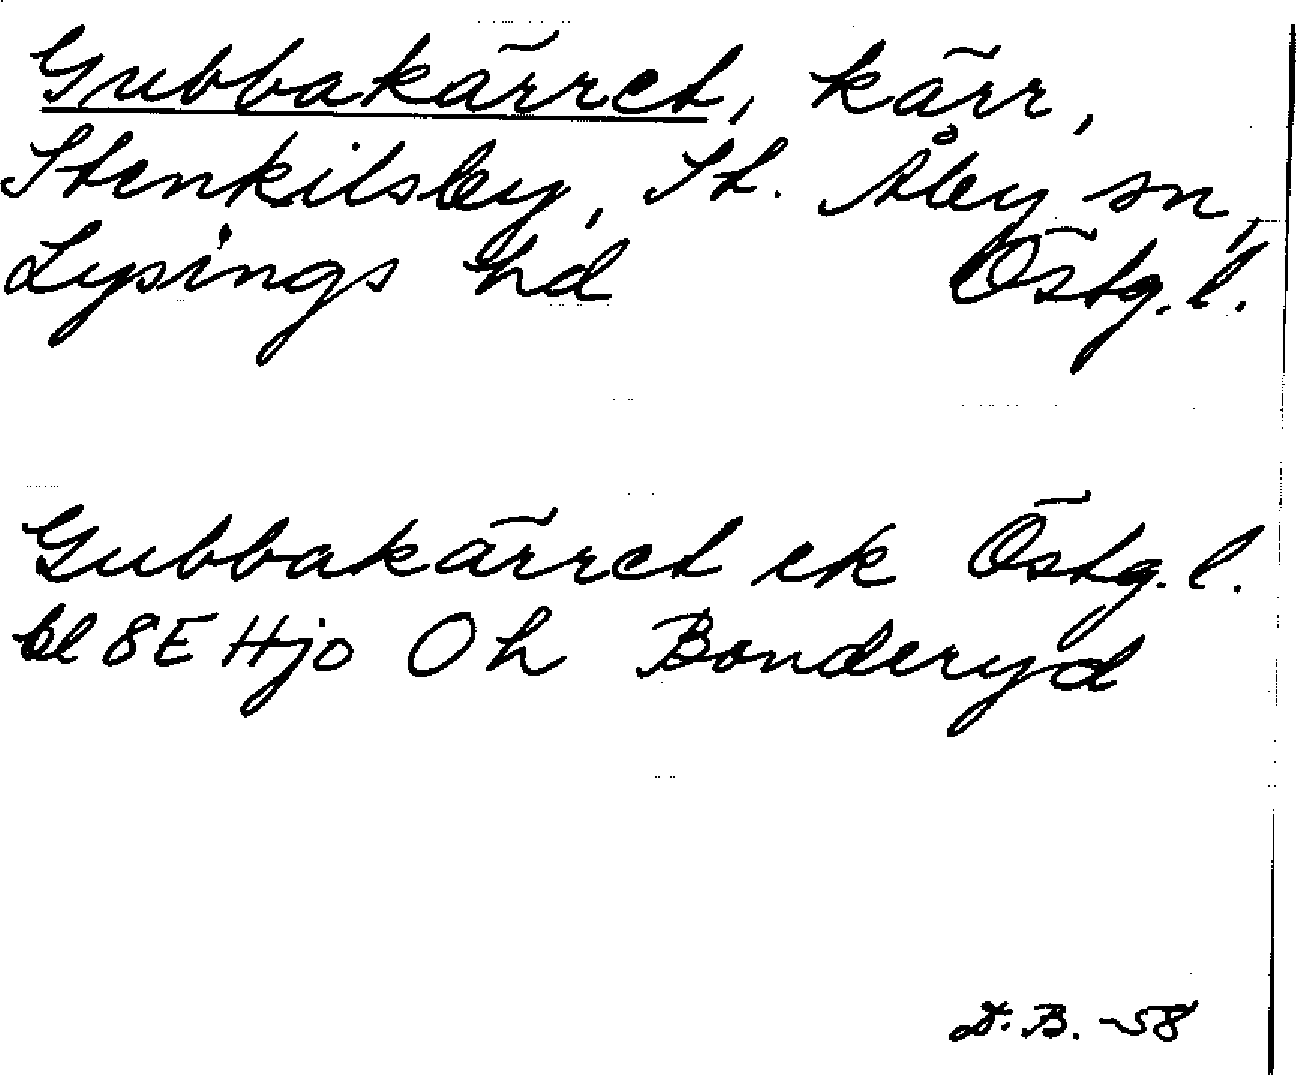 Gubbakärret, kärr,
Stenkilsby, St. Åby sn,
Lysings hd Östg.l.
Gubbakärret ek Östg.l.
bl 8E Hjo Oh Bonderyd
D.B. -58